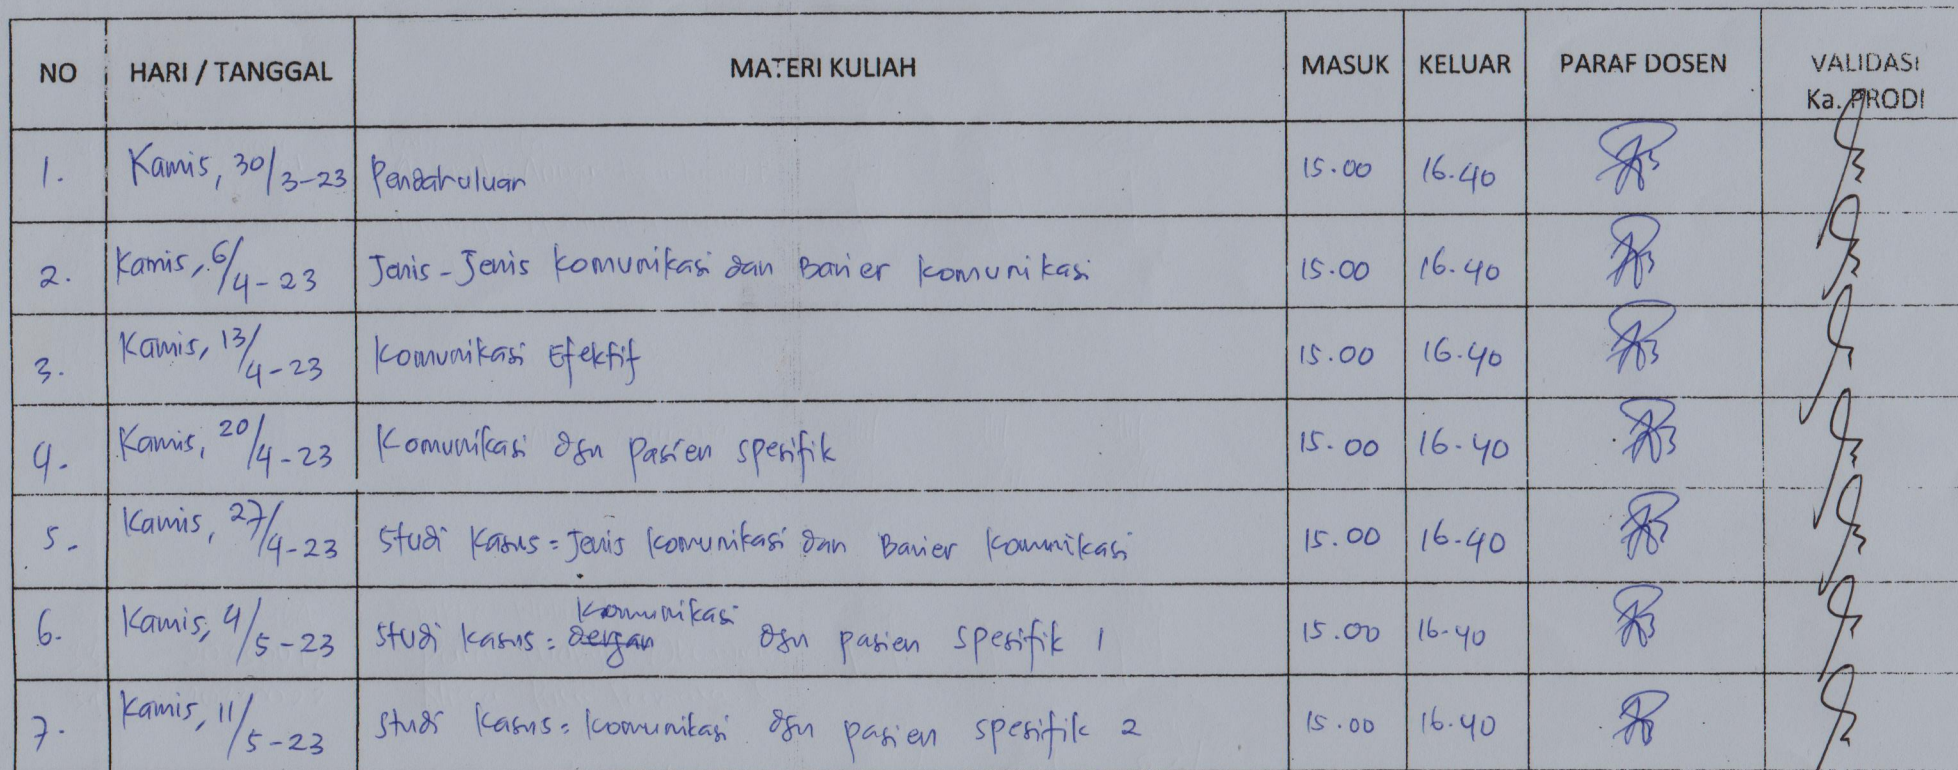 NO HARI / TANGGAL MATERI KULIAH MASUK KELUAR PARAF DOSEN VALIDASI
Ka. PRODI
1. Kamis, 30/3-23 Pendahuluan 15.00 16.40
2. Kamis, 6/4-23 Jenis-Jenis Komunikasi dan Barier Komunikasi 15.00 16.40
3. Kamis, 13/4-23 Komunikasi Efektif 15.00 16.40
4. Kamis, 20/4-23 Komunikasi dgn pasien spesifik 15.00 16.40
5. Kamis, 27/4-23 Studi Kasus = Jenis Komunikasi dan Barier Komunikasi 15.00 16.40
Komunikasi
6. Kamis, 4/5-23 Studi Kasus = dengan dgn pasien spesifik 1 15.00 16.40
7. Kamis, 11/5-23 Studi Kasus = Komunikasi dgn pasien spesifik 2 15.00 16.40